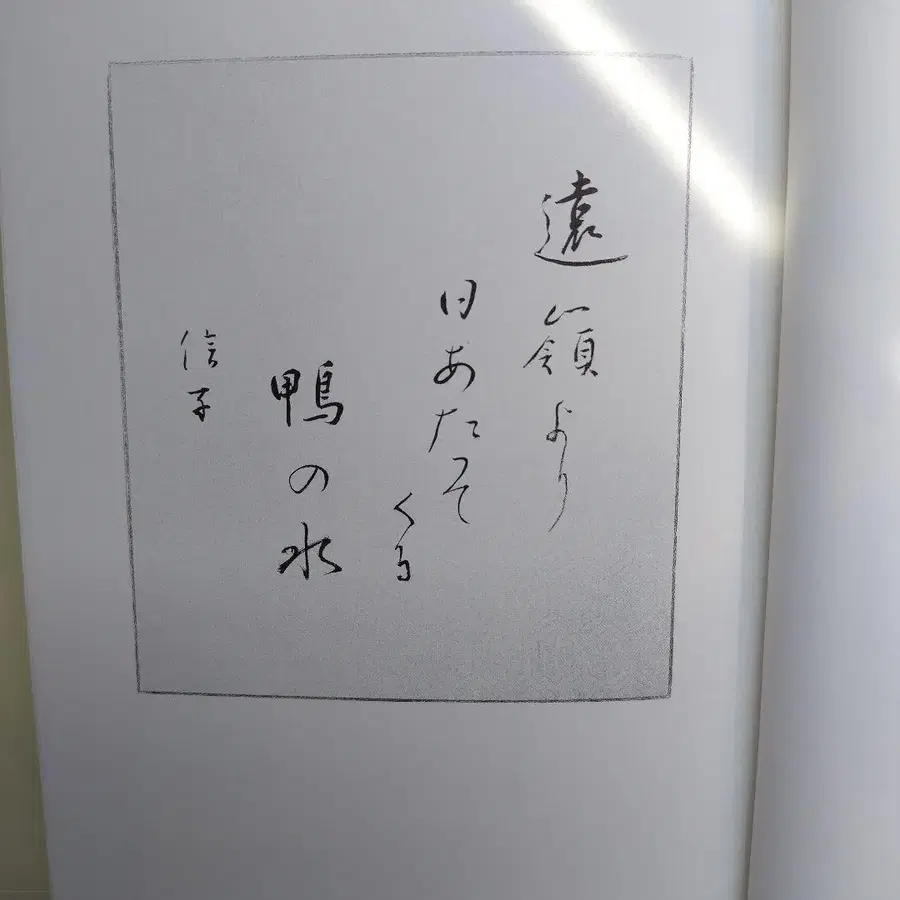 遠嶺より
日あたつて
くる
鴨の水
信子